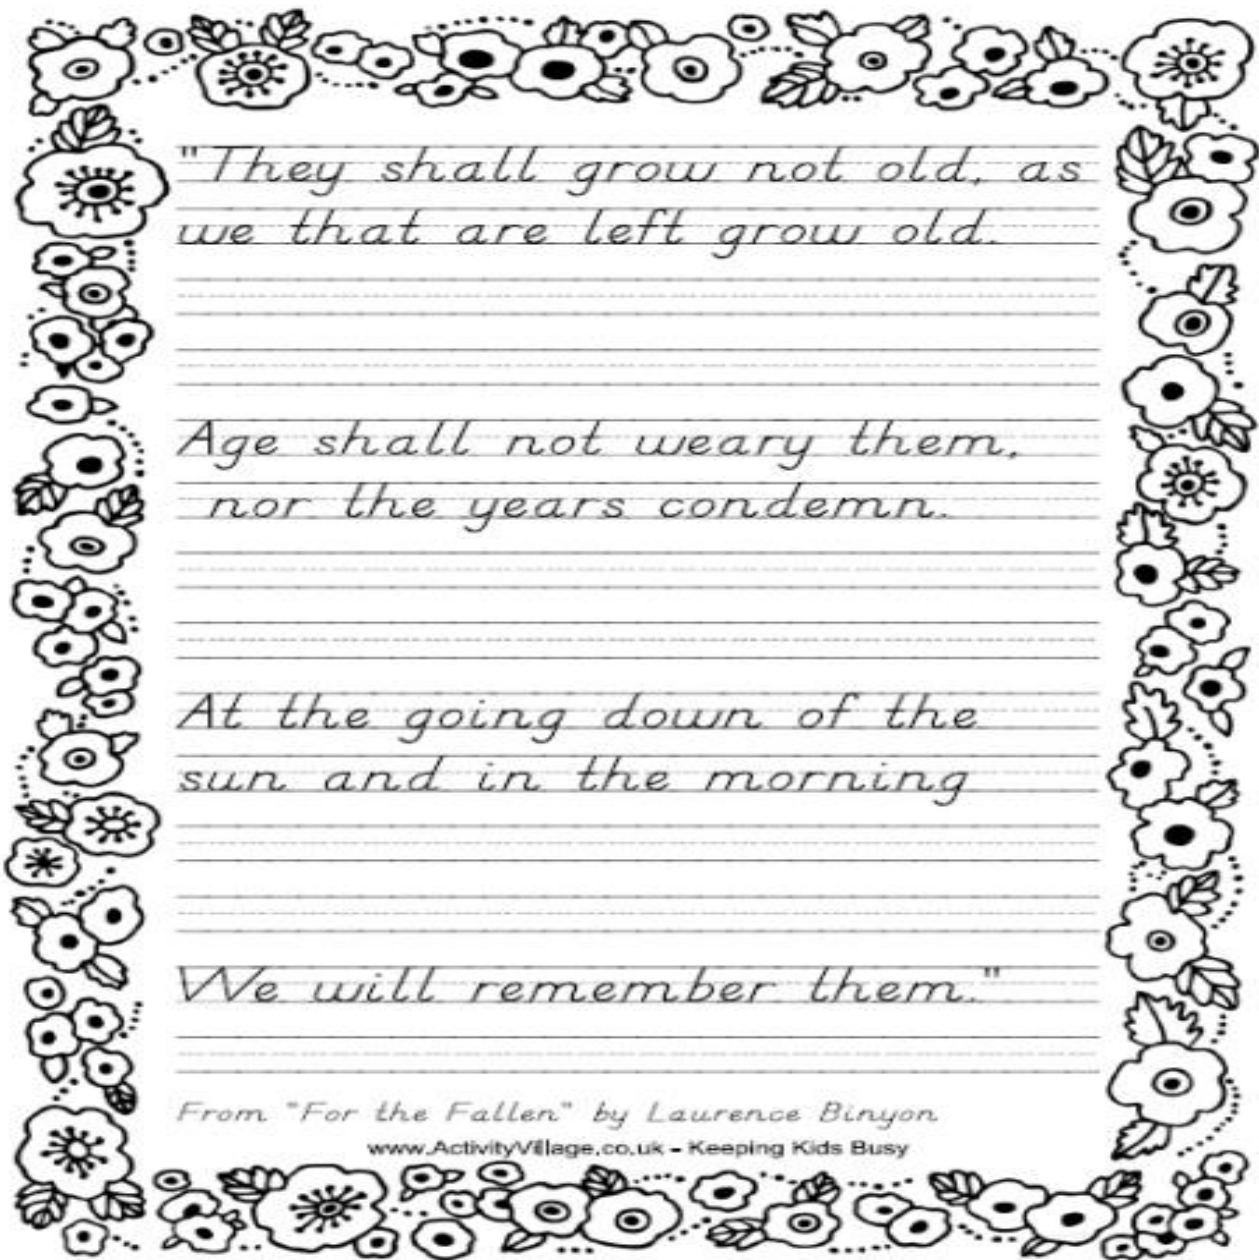 "They shall grow not old, as
we that are left grow old.
Age shall not weary them,
nor the years condemn.
At the going down of the
sun and in the morning
We will remember them."
From "For the Fallen" by Laurence Binyon
www.ActivityVillage.co.uk - Keeping Kids Busy